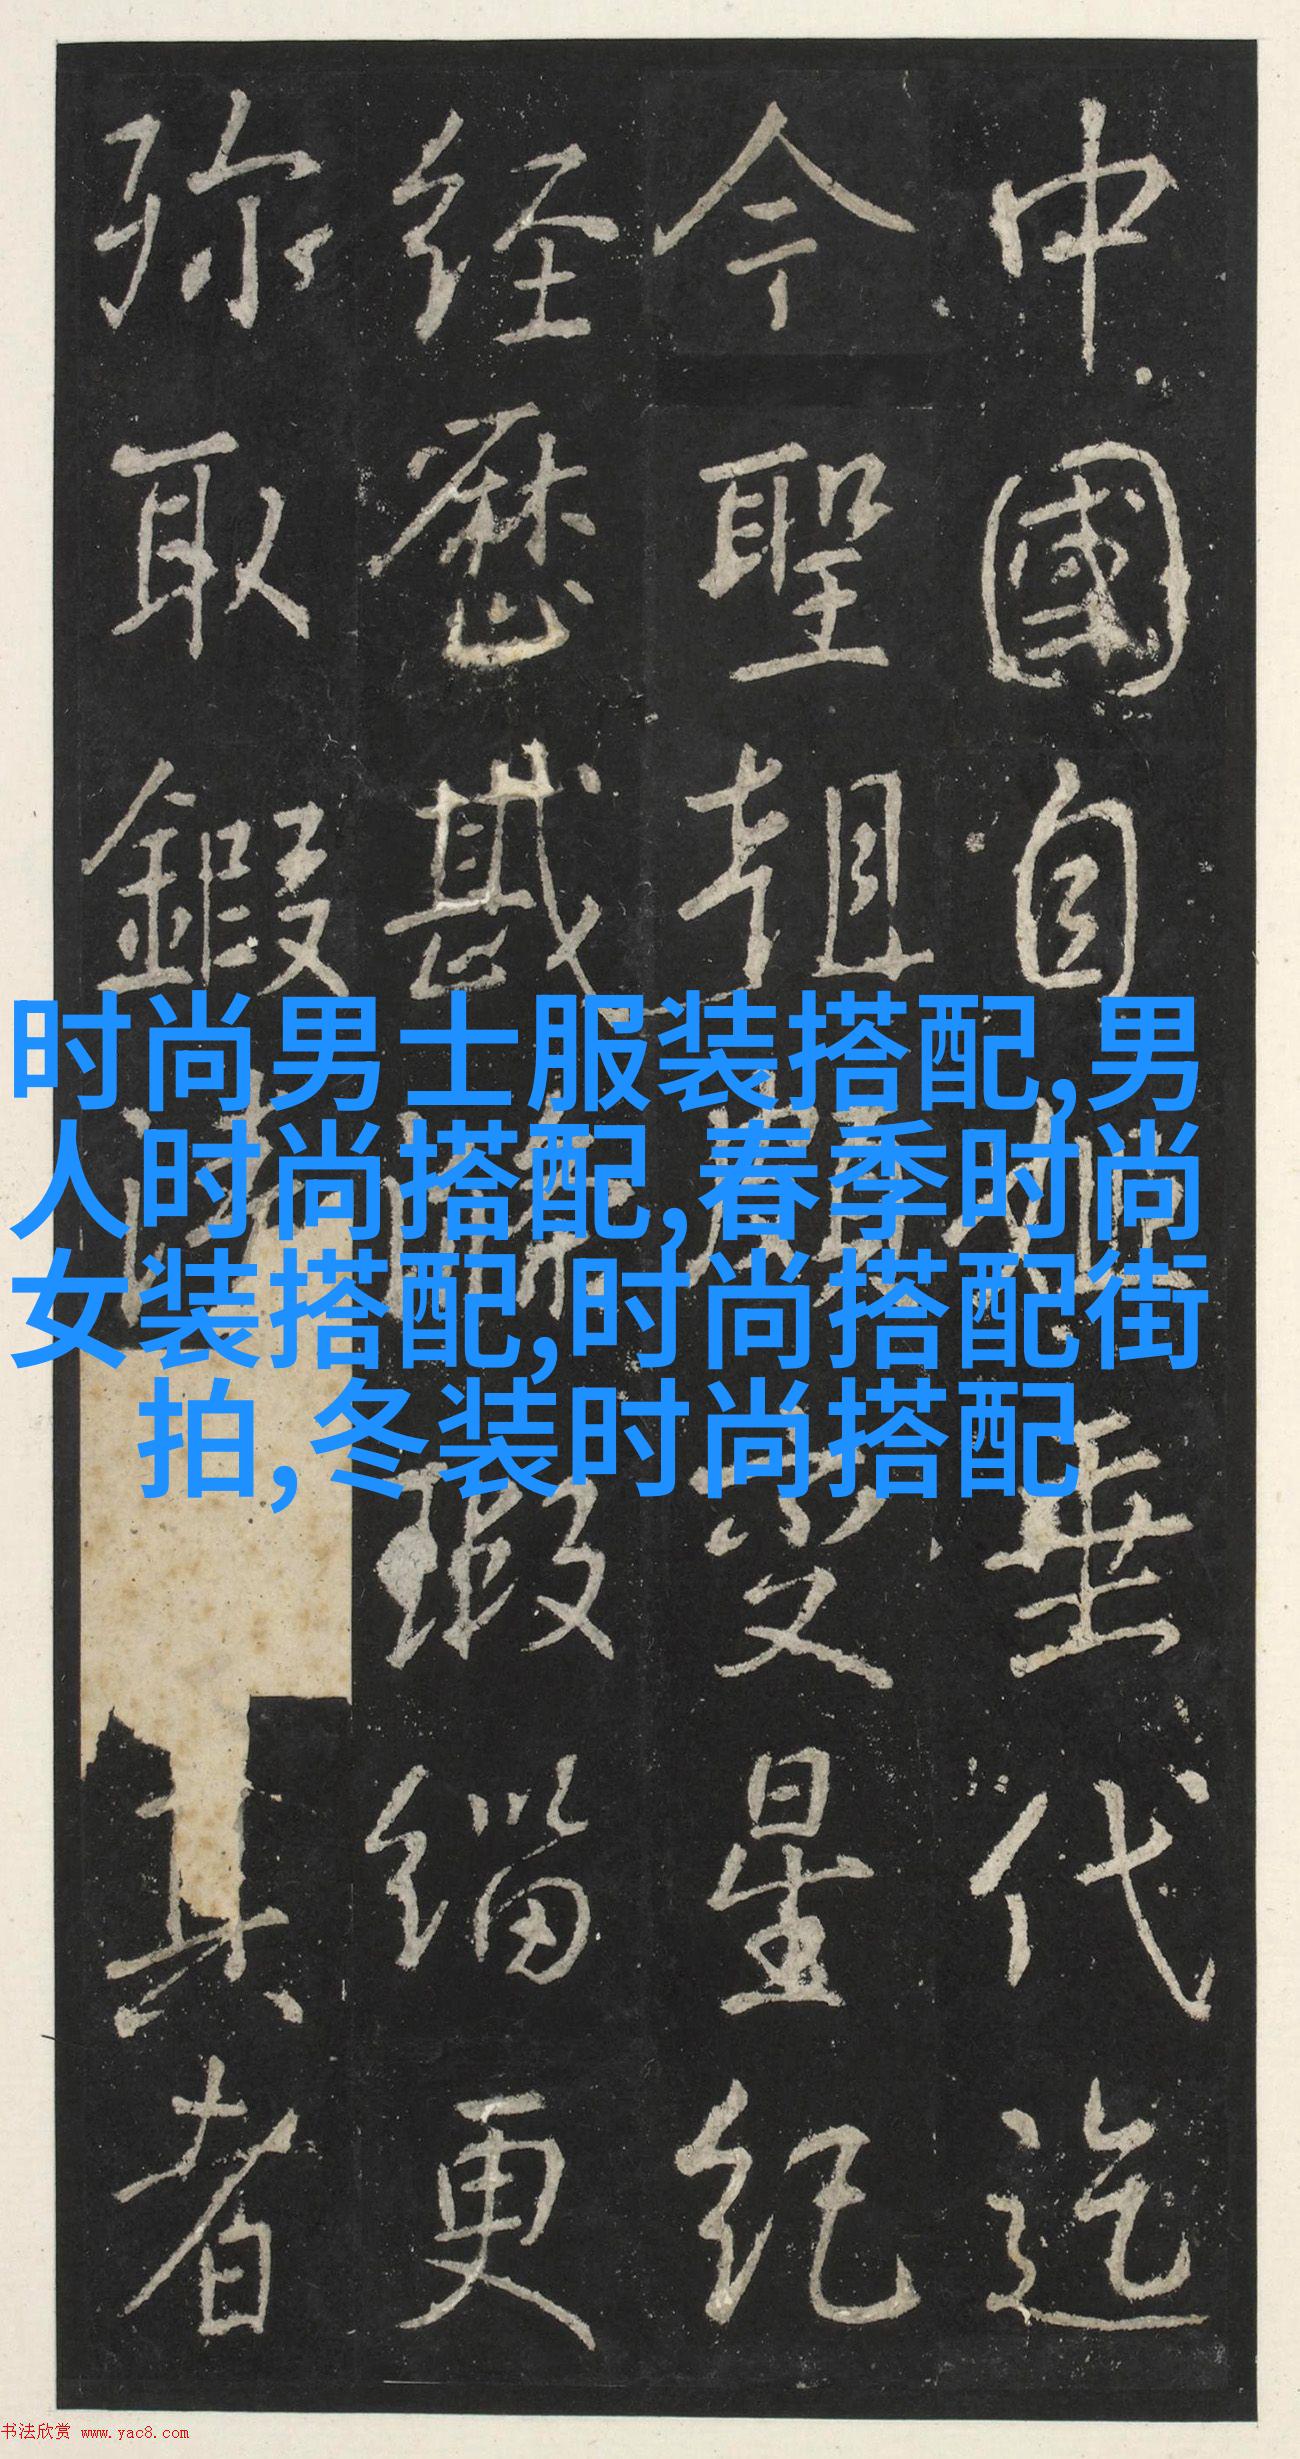 中國自垂代迄
今聖朝星紀
經歷瑕緇更
弥取鍜者
时尚男士服装搭配,男
人时尚搭配,春季时尚
女装搭配,时尚搭配街
拍,冬装时尚搭配
书法欣赏 www.yac8.com